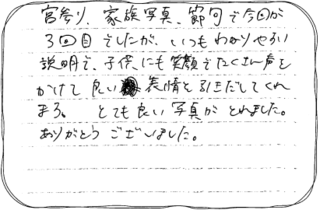 宮参り、家族写真、節句で今回が
3回目でしたが、いつもわかりやすい
説明で、子供にも笑顔でたくさん声を
かけて良い表情を引きだしてくれ
ます。とても良い写真がとれました。
ありがとうございました。